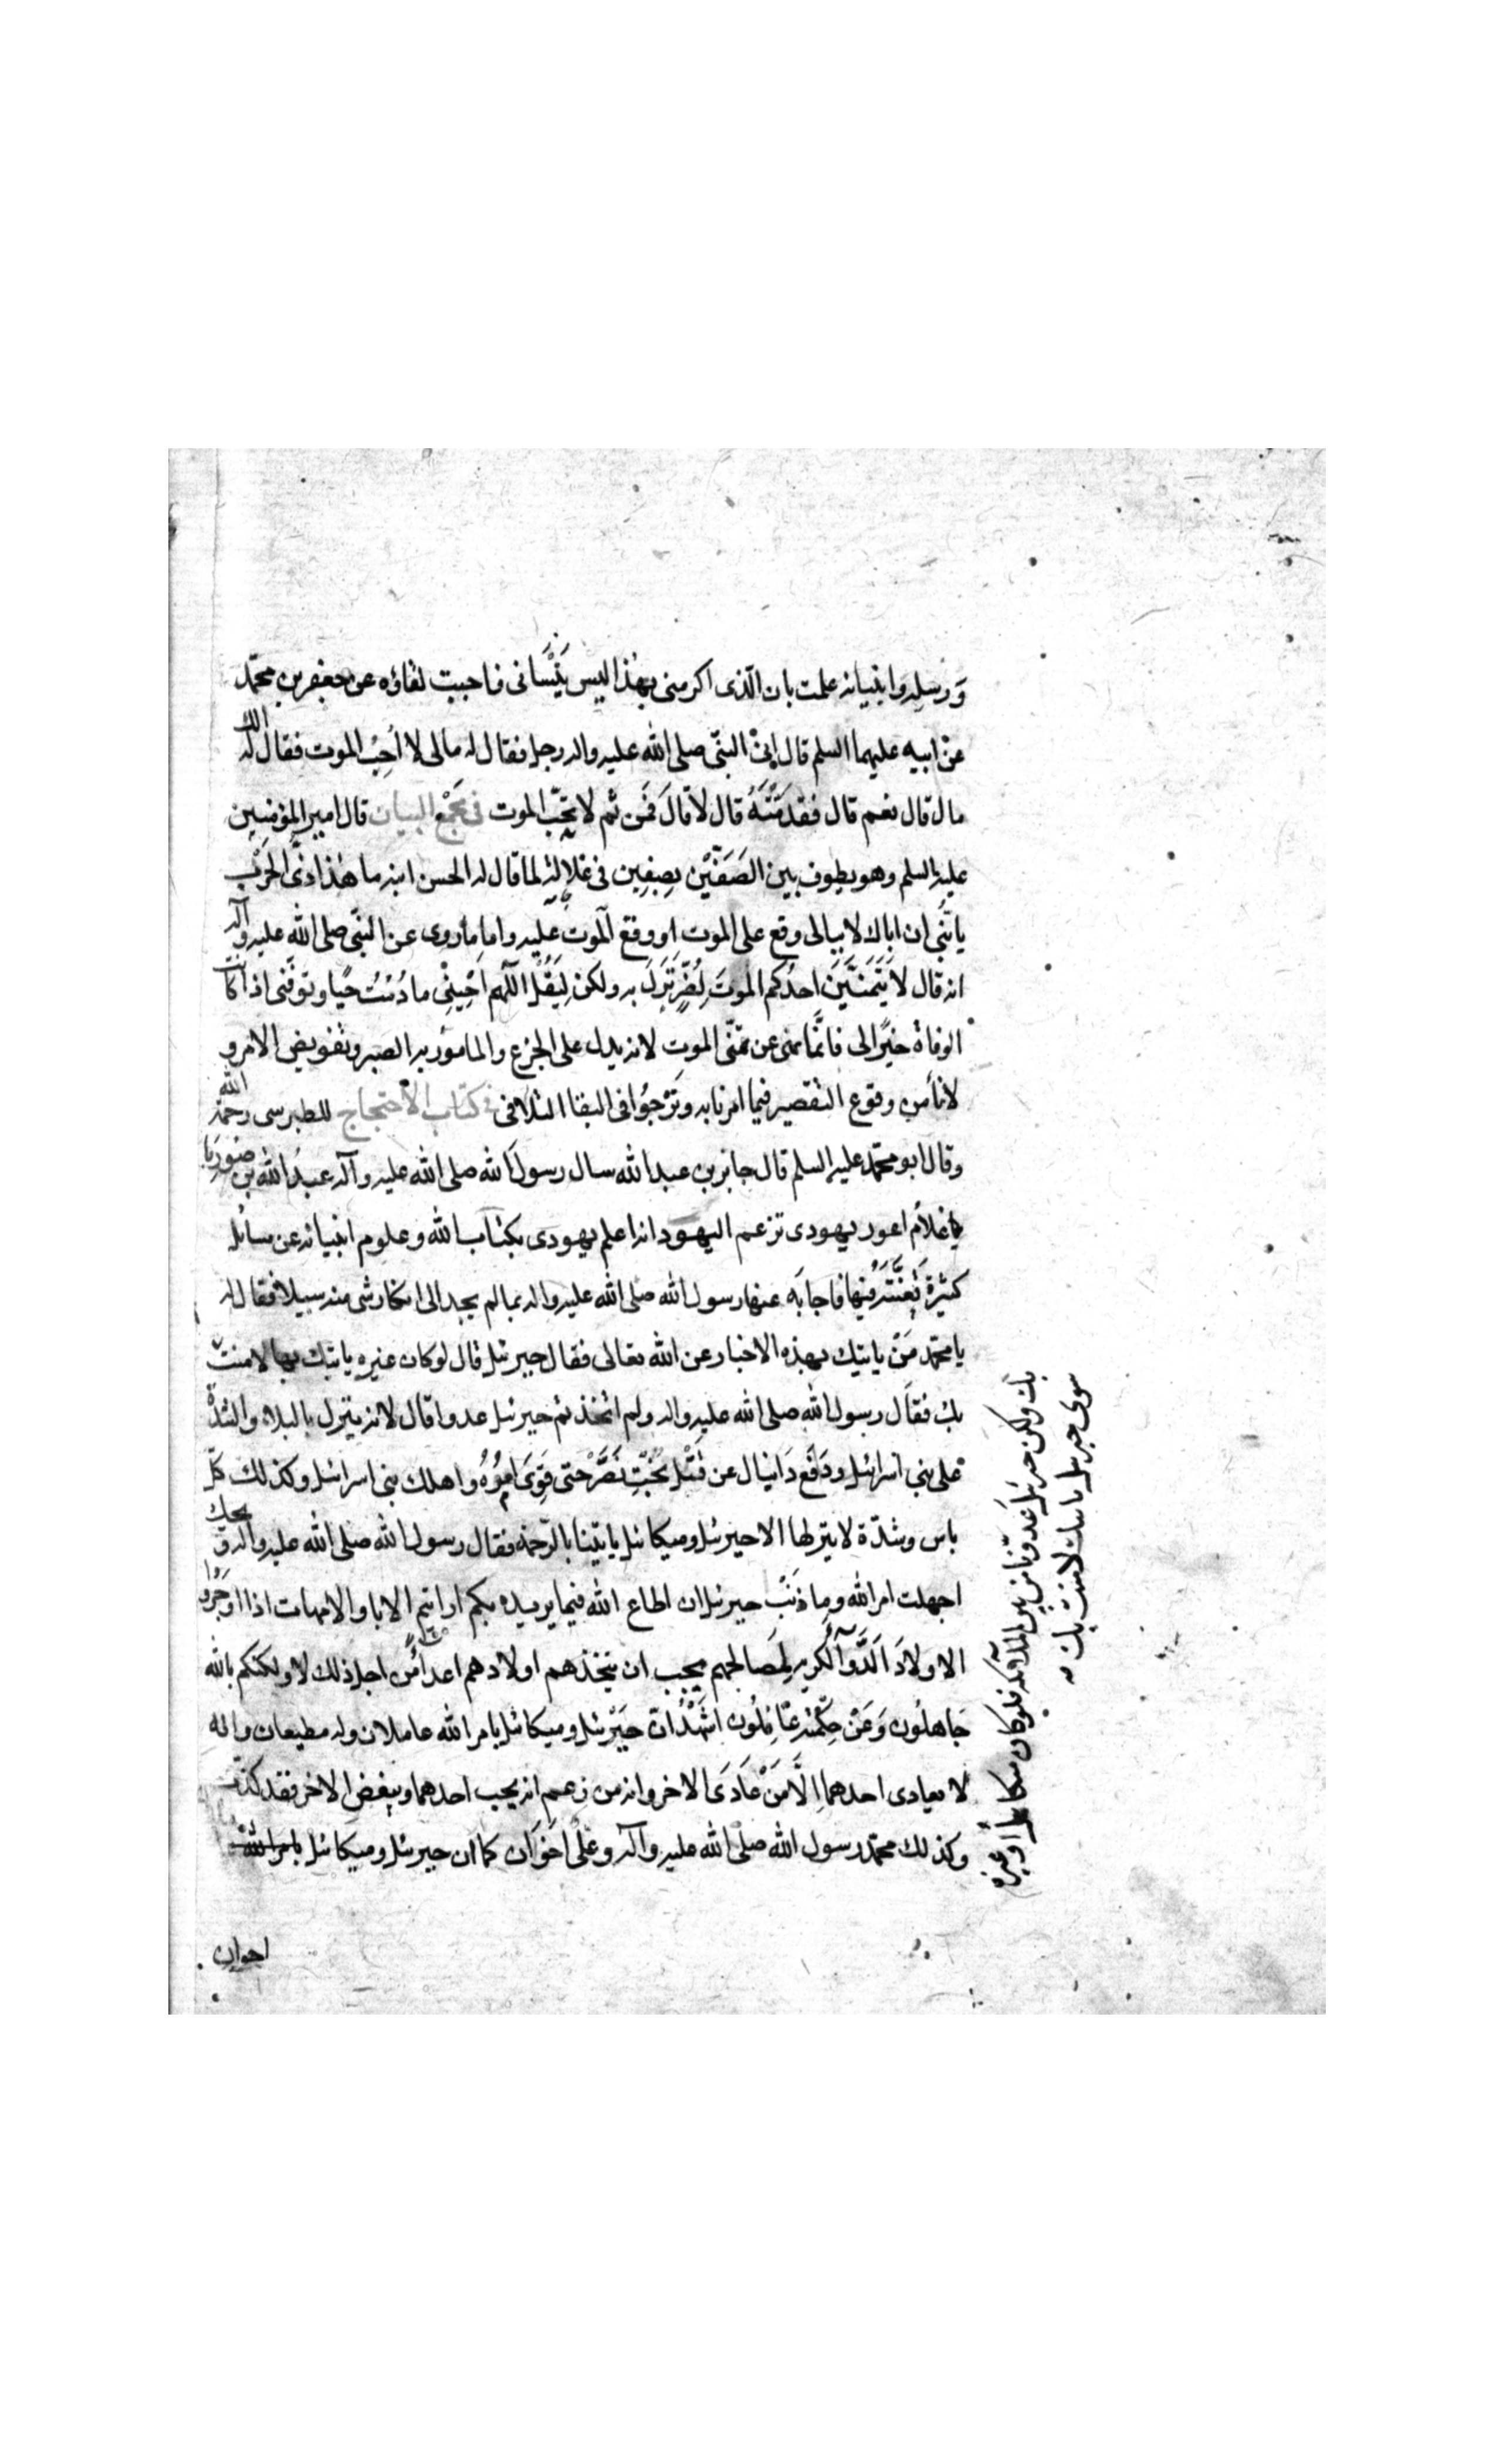 وَرسله وانبيائه علمت بان الّذى اكرمنى بهذا ليس يَنْسَانى فاحببت لقاؤه عن جعفر بن محمّد
عن ابيه عليهما السلم قال اتىٰ النبىّ صلى الله عليه واله رجل فقال له مالى لا اُحِبُ الموت فقال له الك
مال قال نعم قال فقدمْتَهُ قال لا قالَ فَمن ثم لا تحِبّ الموت فى مَجْمع البيان قال امير المؤمنين
عليه السلم وهو يطوف بين الصَفَّيْن بصِفِين فى غلالة لما قال له الحسن ابنه ما هٰذا زىّ الحَرْب
يا بُنَّى ان اباك لا يبالى وقع على الموت او وقع الموت عليه واما ما روى عن النبّى صلى الله عليه وآله
انه قال لا يَتَمنَّيَنَ احدُكم الموتَ لِضُرٍّ نَزَلَ به ولكن لِيَقُلْ اللّهم احْيِنْى ما دُمْتُ حيًا وتوفّنى اذا كا
الوفاة خيرًا لى فانّما نهى عن تمنّى الموت لانه يدل على الجزع والمامور به الصبر وتفويض الامر و
لانا من وقوع التقصير فيما امرنا به ونَرْجُوا فى البقا التلافى فى كتاب الاحتجاج للطبرسى رحمة الله
وقال ابو محمّد عليه السلم قال جابر بن عبد الله سال رسولَ الله صلى الله عليه وآله عبدُ الله بن صُورَيا
غلام اعور يهودى تزعم اليهود انه اعلم يهودى بكتاب الله وعلوم انبيائه عن مسائل
كثيرة يُعَنَّتَه فيها فاجابَه عنها رسول الله صلى الله عليه واله بما لم يجد الى انكار شى منه سبيلا فقال له
يا محمّد مَنْ ياتيك بهذه الاخبار عن الله تعالى فقال جبرئيل قال لو كان غيره ياتيك بها لامنت
بك فقال رسول الله صلى الله عليه واله ولم اتخذتم جبرئيل عدوا قال لانه ينزل بالبلاء والشدّة
على بنى اسرائيل ودَفَع دَانيال عن قَتْل بُخْتِ نَصَّر حْتى قَوِىَ امره واهلك بنى اسرائيل وكذلك كلّ
باس وشدّة لا ينزلها الا جبرئيل وميكائيل ياتينا بالرّحمة فقال رسول الله صلى الله عليه واله ويحك
اجهلت امر الله وما ذَنْب جبرئيل ان اطاع الله فيما يريده بكم ارايتم الابا والامهات اذا اوجَرُوا
الاولادَ الدّوآ الكريه لِمصَالحهم يجب ان يتخذهم اولادهم اعدا من اجل ذلك لا ولكنكم بالله
جَاهلُون وَعَنْ حِكْمته غافِلُون اشْهَدُ انّ جَبْرئيل وميكائيل بامر الله عاملان وله مطيعان وانه
لا يعادى احدهما اِلَّا مَنْ عَادَى الاخر وانه من زعم انه يحب احدهما ويبغض الاخر فقد كذب
وكذلك محمّد رسول الله صلّى الله عليه وآله وعلىْ اخوَان كما ان جبرئيل وميكائيل بامر الله
اخوان
بك ولكن جبرئيل عَدوّنا من بين الملائكة فلو كان ميكائيل او غيره
سوى جبرئيل ياتيك لامنت بك